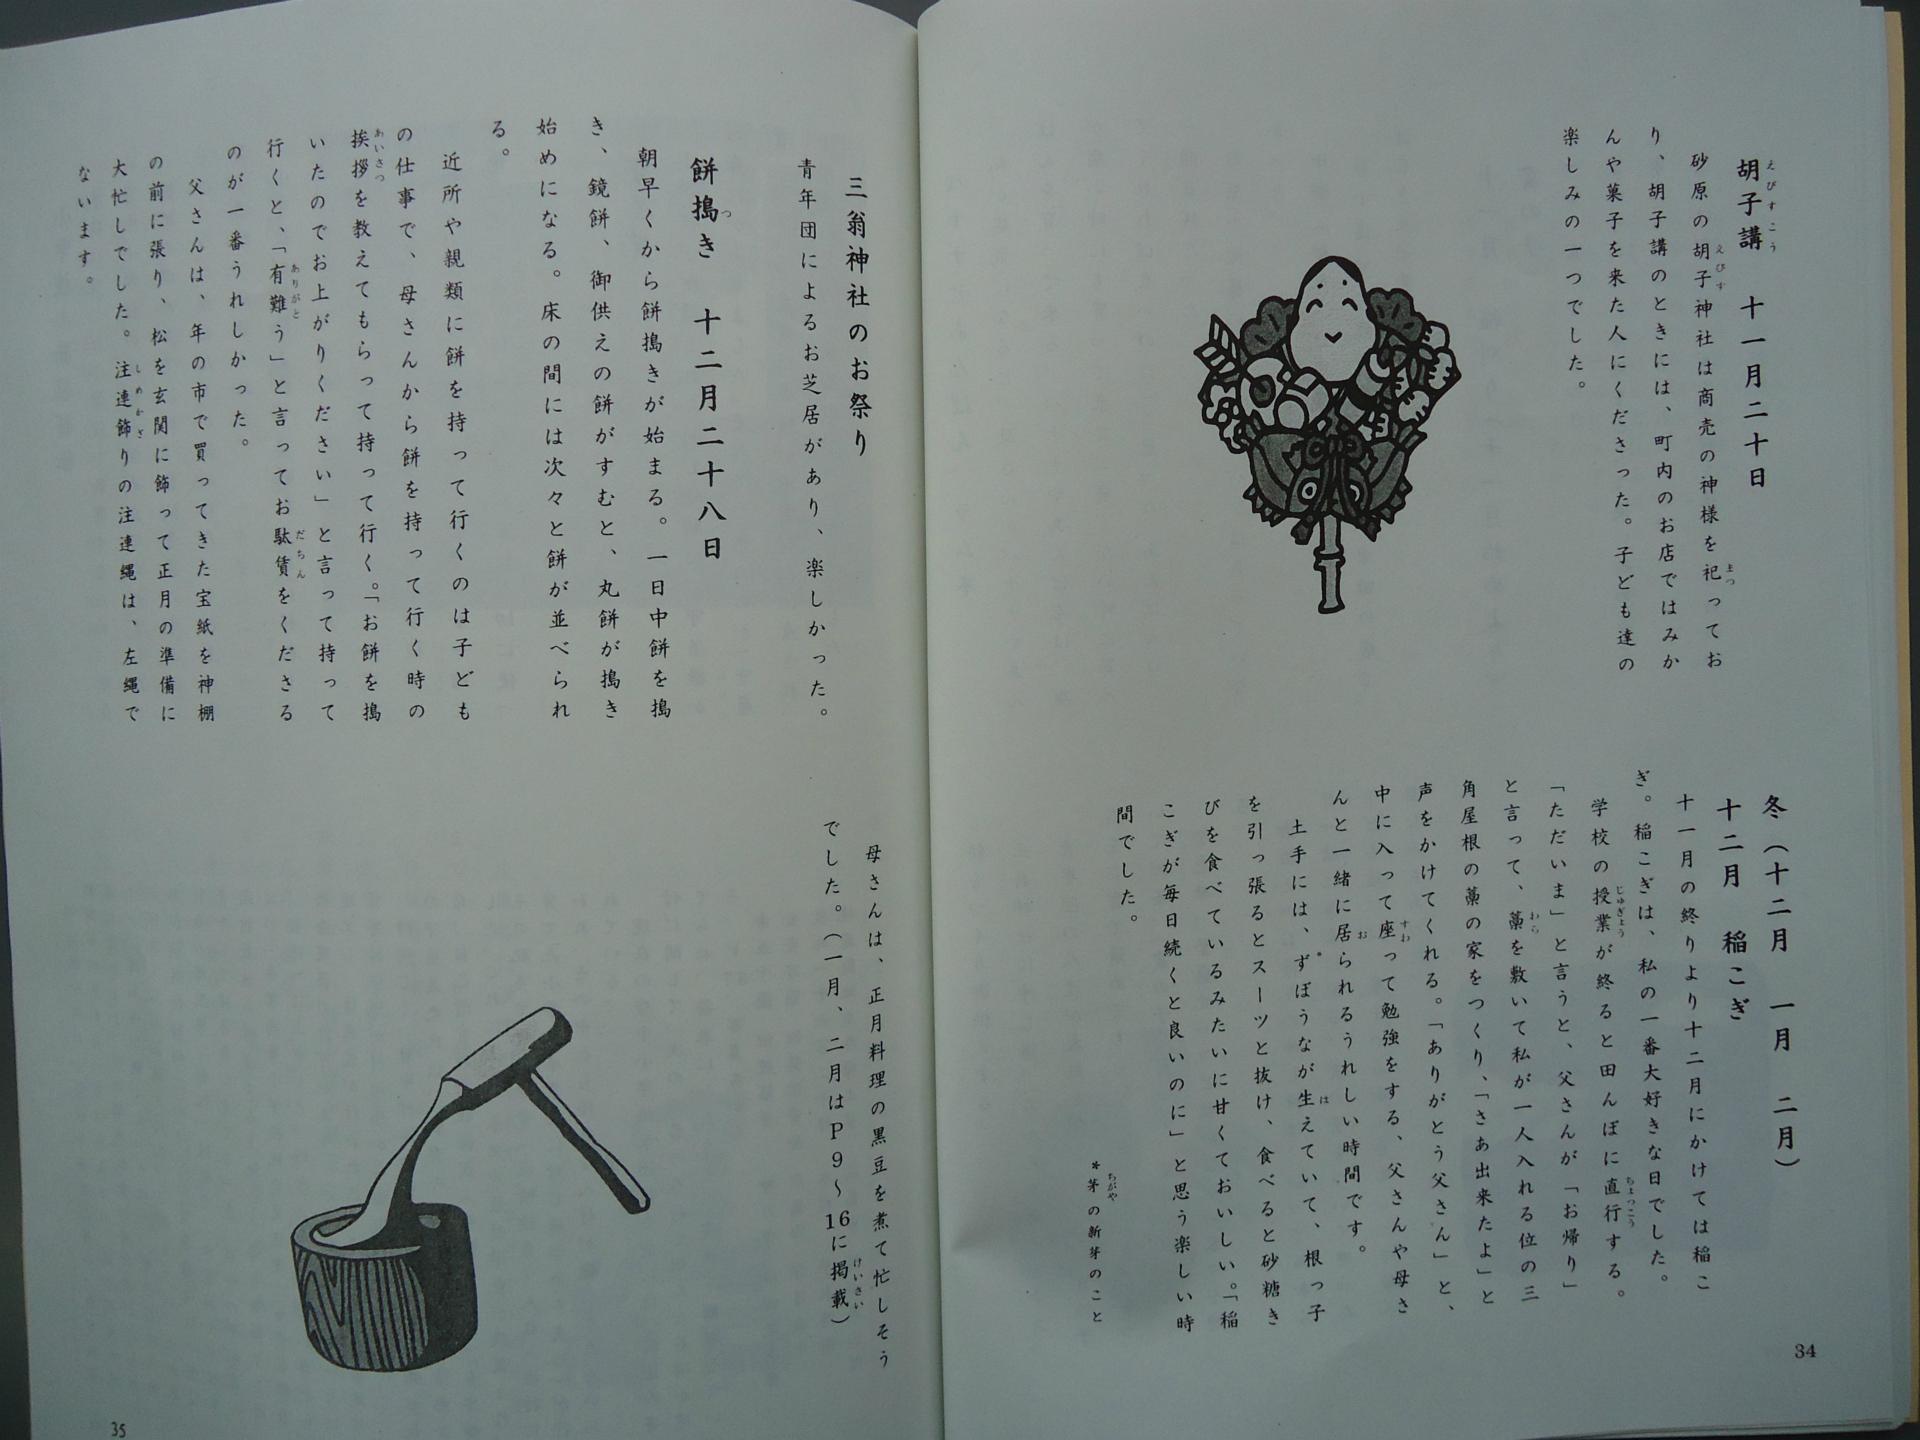 胡子講　十一月二十日
えびすこう
砂原の胡子神社は商売の神様を祀ってお
えびす
まつ
り、胡子講のときには、町内のお店ではみか
んや菓子を来た人にくださった。子ども達の
楽しみの一つでした。
冬（十二月　一月　二月）
十二月　稲こぎ
十一月の終りより十二月にかけては稲こ
ぎ。稲こぎは、私の一番大好きな日でした。
学校の授業が終ると田んぼに直行する。
じゅぎょう
ちょっこう
「ただいま」と言うと、父さんが「お帰り」
と言って、藁を敷いて私が一人入れる位の三
わら
角屋根の藁の家をつくり、「さあ出来たよ」と
声をかけてくれる。「ありがとう父さん」と、
中に入って座って勉強をする、父さんや母さ
すわ
んと一緒に居られるうれしい時間です。
お
土手には、*ずぼうなが生えていて、根っ子
は
を引っ張るとスーツと抜け、食べると砂糖き
びを食べているみたいに甘くておいしい。「稲
こぎが毎日続くと良いのに」と思う楽しい時
間でした。
*茅の新芽のこと
ちがや
34
三翁神社のお祭り
青年団によるお芝居があり、楽しかった。
餅搗き　十二月二十八日
つ
朝早くから餅搗きが始まる。一日中餅を搗
き、鏡餅、御供えの餅がすむと、丸餅が搗き
始めになる。床の間には次々と餅が並べられ
る。
近所や親類に餅を持って行くのは子ども
の仕事で、母さんから餅を持って行く時の
挨拶を教えてもらって持って行く。「お餅を搗
あいさつ
いたのでお上がりください」と言って持って
行くと、「有難う」と言ってお駄賃をくださる
ありがと
だちん
のが一番うれしかった。
父さんは、年の市で買ってきた宝紙を神棚
の前に張り、松を玄関に飾って正月の準備に
大忙しでした。注連飾りの注連縄は、左縄で
しめかざ
ないます。
母さんは、正月料理の黒豆を煮て忙しそう
でした。（一月、二月はP9～16に掲載）
けいさい
35